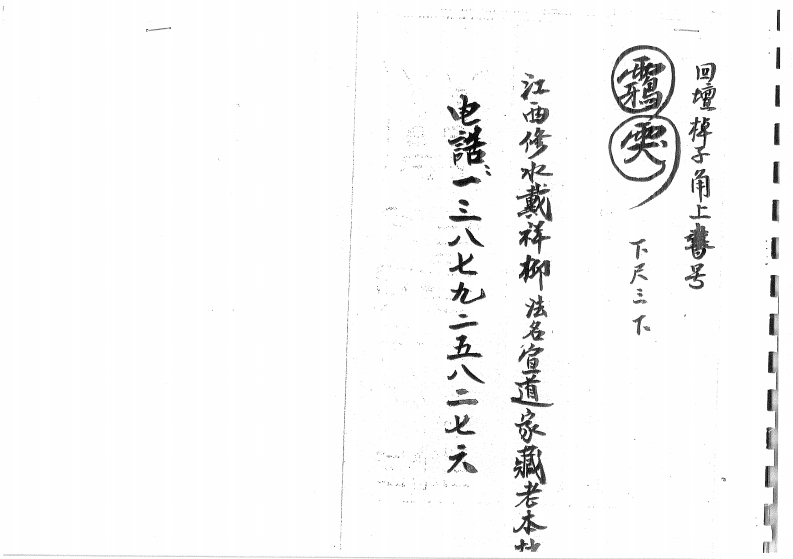 回壇棹子角上書号
下尺三下
江西修水戴祥柳法名宣道家藏老本
电話：一三八七九二五八二七六